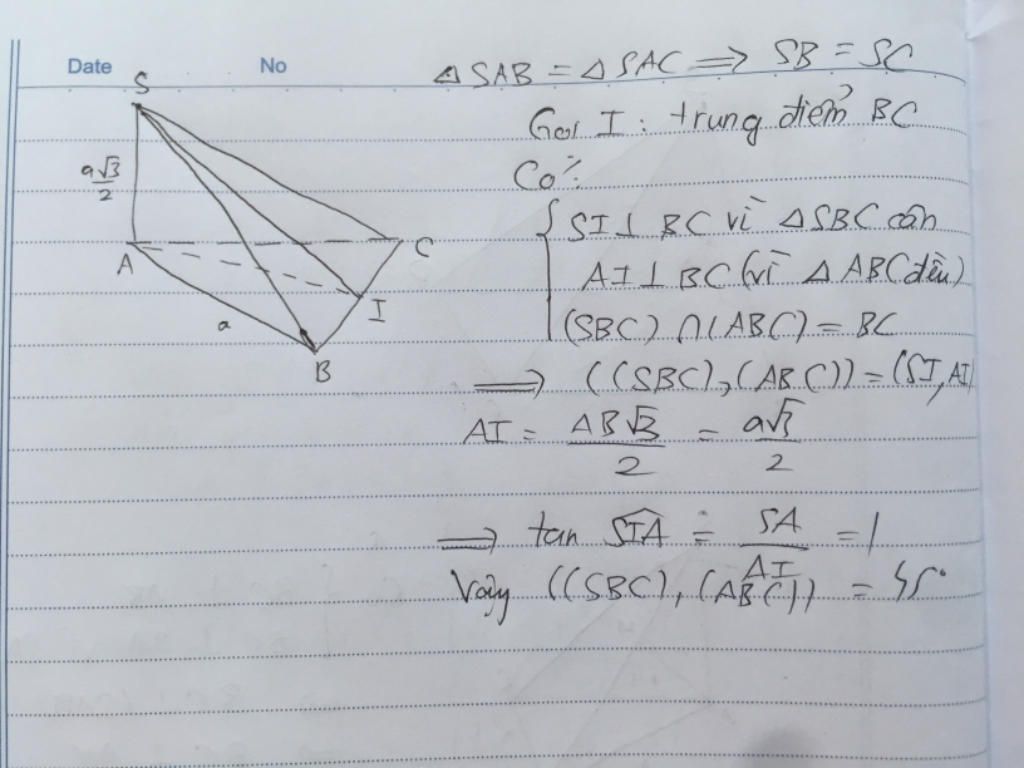 Date No
ΔSAB = ΔSAC ⟹ SB = SC
Gọi I : trung điểm BC
Có:
SI ⊥ BC vì ΔSBC cân
AI ⊥ BC (vì ΔABC đều)
(SBC) ∩ (ABC) = BC
⟹ ((SBC), (ABC)) = (SI, AI)
AI = AB√3/2 = a√3/2
⟹ tan SIA = SA/AI = 1
Vậy ((SBC), (ABC)) = 45°
S
a√3/2
A
C
I
a
B